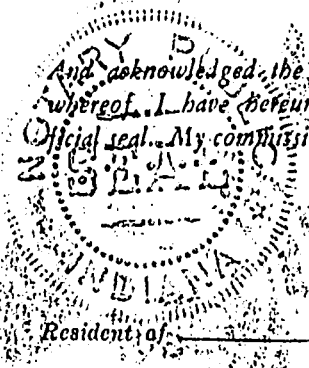 And acknowledged the
whereof, I have hereun
fficial seal. My commissi
NOTARY PUBLIC
SEAL
INDIANA
Resident of